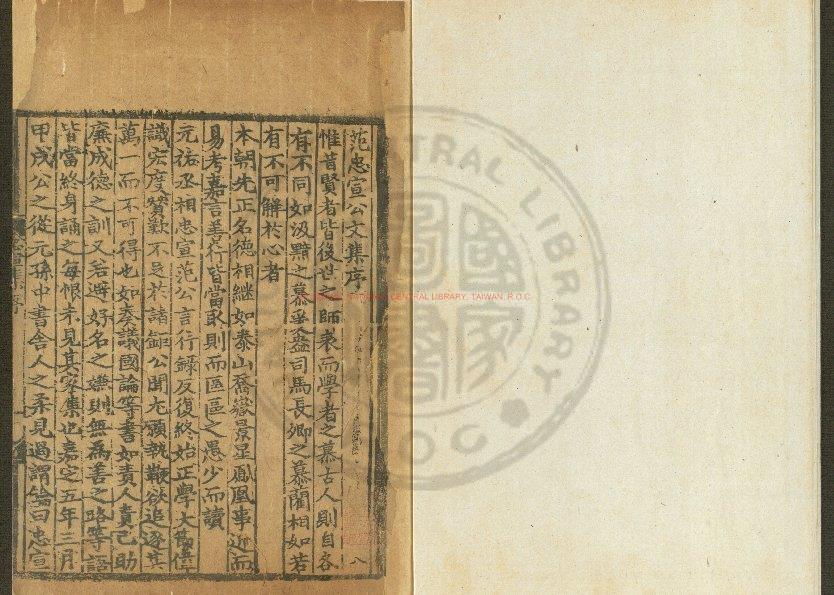 范忠宣公文集序
惟昔賢者皆後世之師表而學者之慕古人則自各
有不同如汲黯之慕爰盎司馬長卿之慕藺相如若
有不可解於心者
本朝先正名德相繼如泰山喬嶽景星鳳凰事近而
易考嘉言善行皆當取則而區區之愚少而讀
元祐丞相忠宣范公言行錄反復終始正學大節偉
識宏度贊歎不足於諸鉅公間尤願執鞭欲追逐其
萬一而不可得也如奏議國論等書如責人責己助
廉成德之訓又若避好名之嫌則無為善之路等語
皆當終身誦之每恨未見其家集也嘉定五年三月
甲戌公之從元孫中書舍人之柔見過謂鑰曰忠宣
八
NATIONAL CENTRAL LIBRARY, TAIWAN, R.O.C
CENTRAL LIBRARY
R.O.C